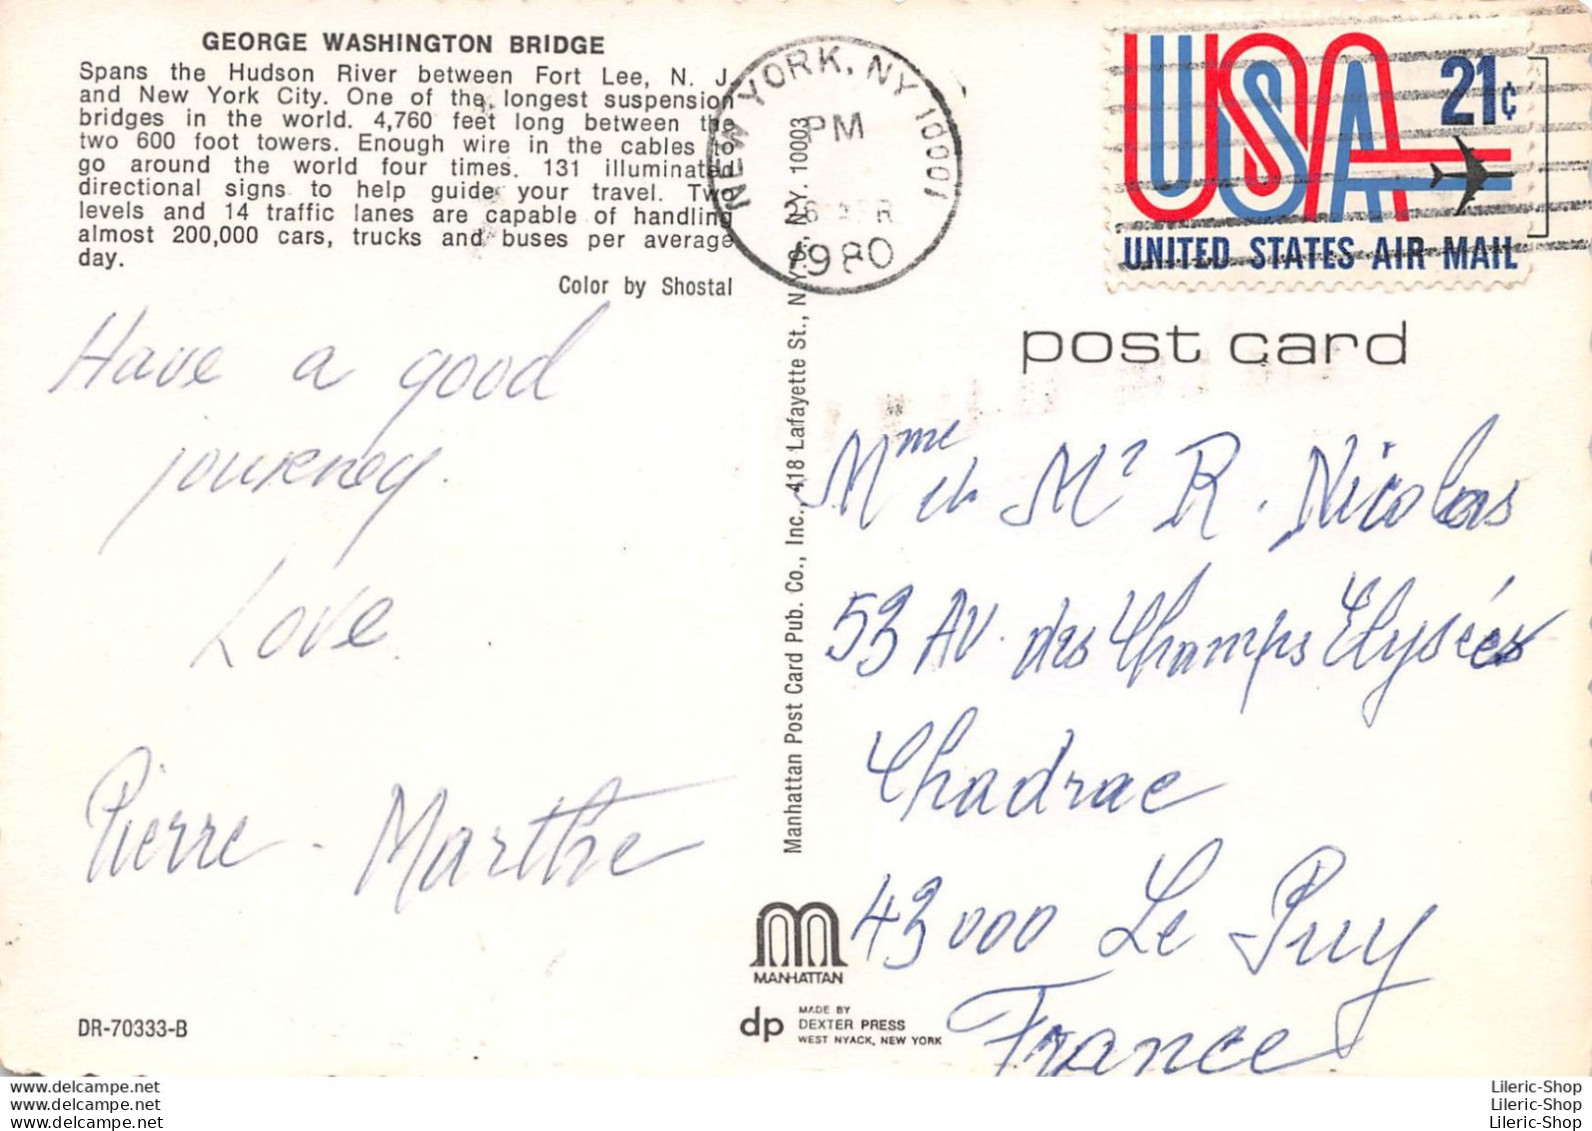 GEORGE WASHINGTON BRIDGE
Spans the Hudson River between Fort Lee, N. J.
and New York City. One of the longest suspension
bridges in the world. 4,760 feet long between the
two 600 foot towers. Enough wire in the cables to
go around the world four times. 131 illuminated
directional signs to help guide your travel. Two
levels and 14 traffic lanes are capable of handling
almost 200,000 cars, trucks and buses per average
day.
Color by Shostal
Have a good
journey.
Love.
Pierre - Marthe
DR-70333-B
NEW YORK, NY 10001
PM
1980
Manhattan Post Card Pub. Co., Inc., 418 Lafayette St., N.Y.C. N.Y. 10003
MANHATTAN
dp
MADE BY
DEXTER PRESS
WEST NYACK, NEW YORK
USA
21¢
UNITED STATES AIR MAIL
post card
Mme et Mr R. Nicolas
53 Av. des Champs Elysées
Chadrac
43000 Le Puy
France
www.delcampe.net
www.delcampe.net
www.delcampe.net
Lileric-Shop
Lileric-Shop
Lileric-Shop